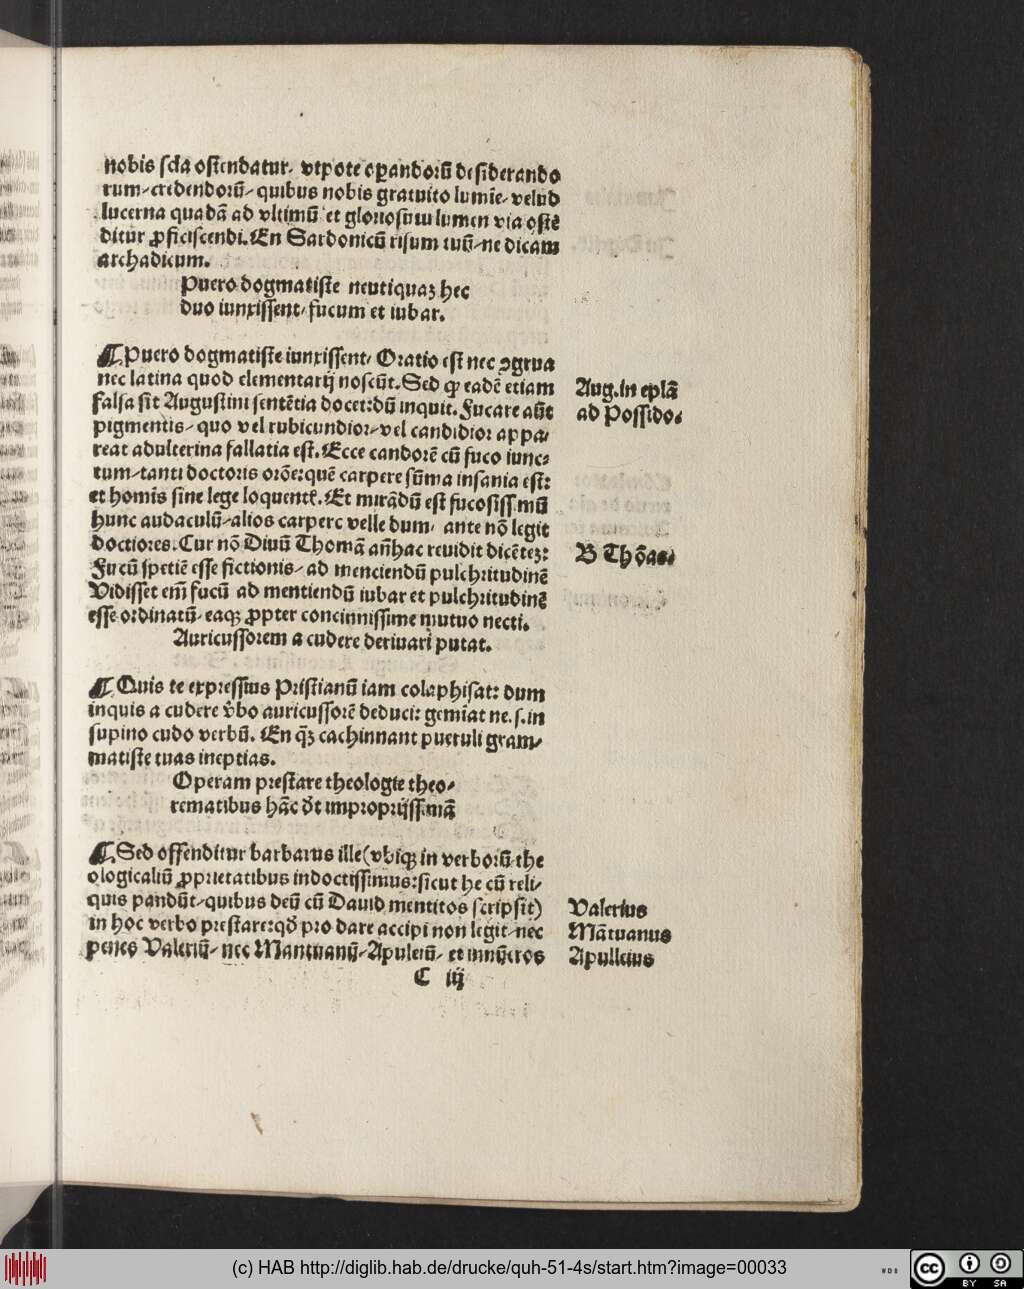 nobis scĺa ostendatur, vtpote oꝑandorū desiderando
rum, credendorū, quibus nobis gratuito lumīe, velud
lucerna quadā ad vltimū et gloriosum lumen via ostē
ditur ꝓficiscendi. En Sardonicū risum tuū, ne dicam
archadicum.
Puero dogmatiste neutiquaꝫ hec
duo iunxissent, fucum et iubar.
¶ Puero dogmatiste iunxissent, Oratio est nec ꝯgrua
nec latina quod elementarij noscūt. Sed qꝫ eadē etiam
falsa sit Augustini sentētia docet: dū inquit. Fucare aūt
pigmentis, quo vel rubicundior, vel candidior appa,
reat adulterina fallatia est. Ecce candorē cū fuco iunc,
tum, tanti doctoris orōe: quē carpere sūma insania est:
et homīs sine lege loquentꝭ. Et mirādū est fucosiss.mū
hunc audaculū, alios carpere velle dum, ante nō legit
doctiores. Cur nō Diuū Thomā añhac reuidit dicēteꝫ:
Fucū spetiē esse fictionis, ad menciendū pulchritudinē
Vidisset em̄ fucū ad mentiendū iubar et pulchritudinē
esse ordinatū, eaqꝫ ꝓpter concinnissime mutuo necti.
Auricussorem a cudere deriuari putat.
¶ Quis te expressius Pristianū iam colaphisat: dum
inquis a cudere v̄bo auricussorē deduci: gemīat ne .s. in
supino cudo verbū. En q̄ꝫ cachinnant pueruli gram,
matiste tuas ineptias.
Operam prestare theologie theo,
rematibus hāc d̄t impropriissimā
¶ Sed offenditur barbarus ille (vbiqꝫ in verborū the
ologicaliū ꝓprietatibus indoctissimus: sicut he cū reli,
quis pandūt, quibus deū cū Dauid mentitos scripsit)
in hoc verbo prestare: qd̄ pro dare accipi non legit, nec
penes Valeriū, nec Mantuanū, Apuleiū, et innūeros
C iij
Aug. in eplā
ad Possido.
B Thōas.
Valerius
Mātuanus
Apulleius
(c) HAB http://diglib.hab.de/drucke/quh-51-4s/start.htm?image=00033
WDB
CC BY SA